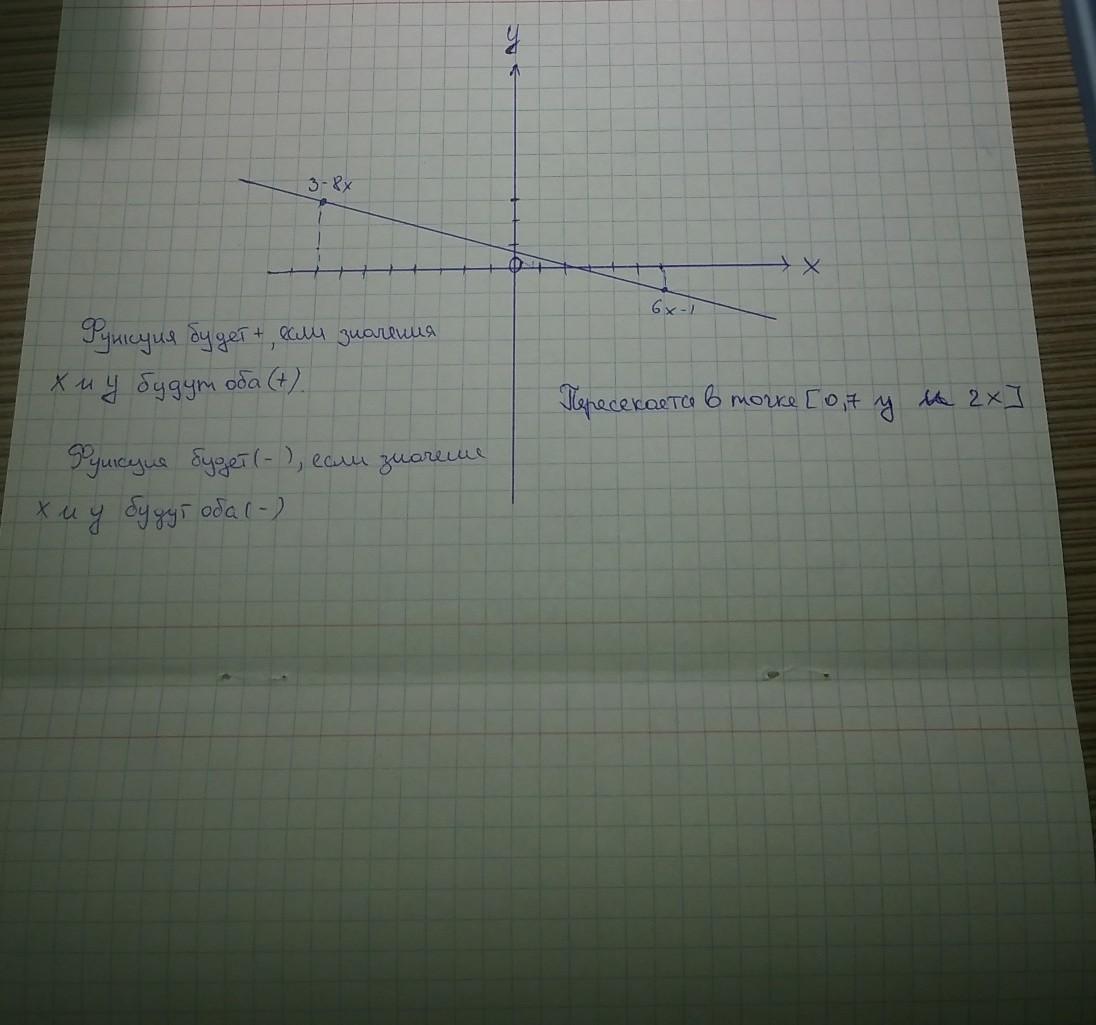 y
3-8x
x
6x-1
Функция будет +, если значения
х и у будут оба (+).
Пересекается в точке [0,7 у и 2х]
Функция будет (-), если значение
х и у будут оба (-)